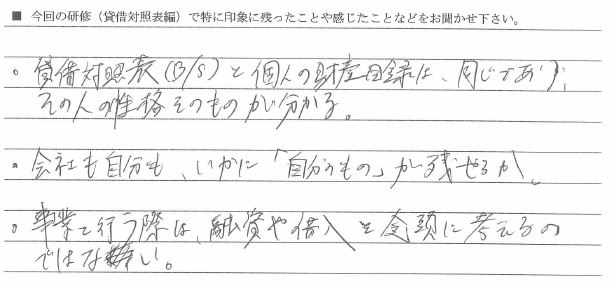 ■ 今回の研修（貸借対照表編）で特に印象に残ったことや感じたことなどをお聞かせ下さい。
。貸借対照表（B/S）と個人の財産目録は、同じであり、
その人の性格そのものが分かる。
・会社も自分も、いかに「自分のもの」が残せるか。
。事業を行う際は、融資や借入を念頭に考えるの
ではない。